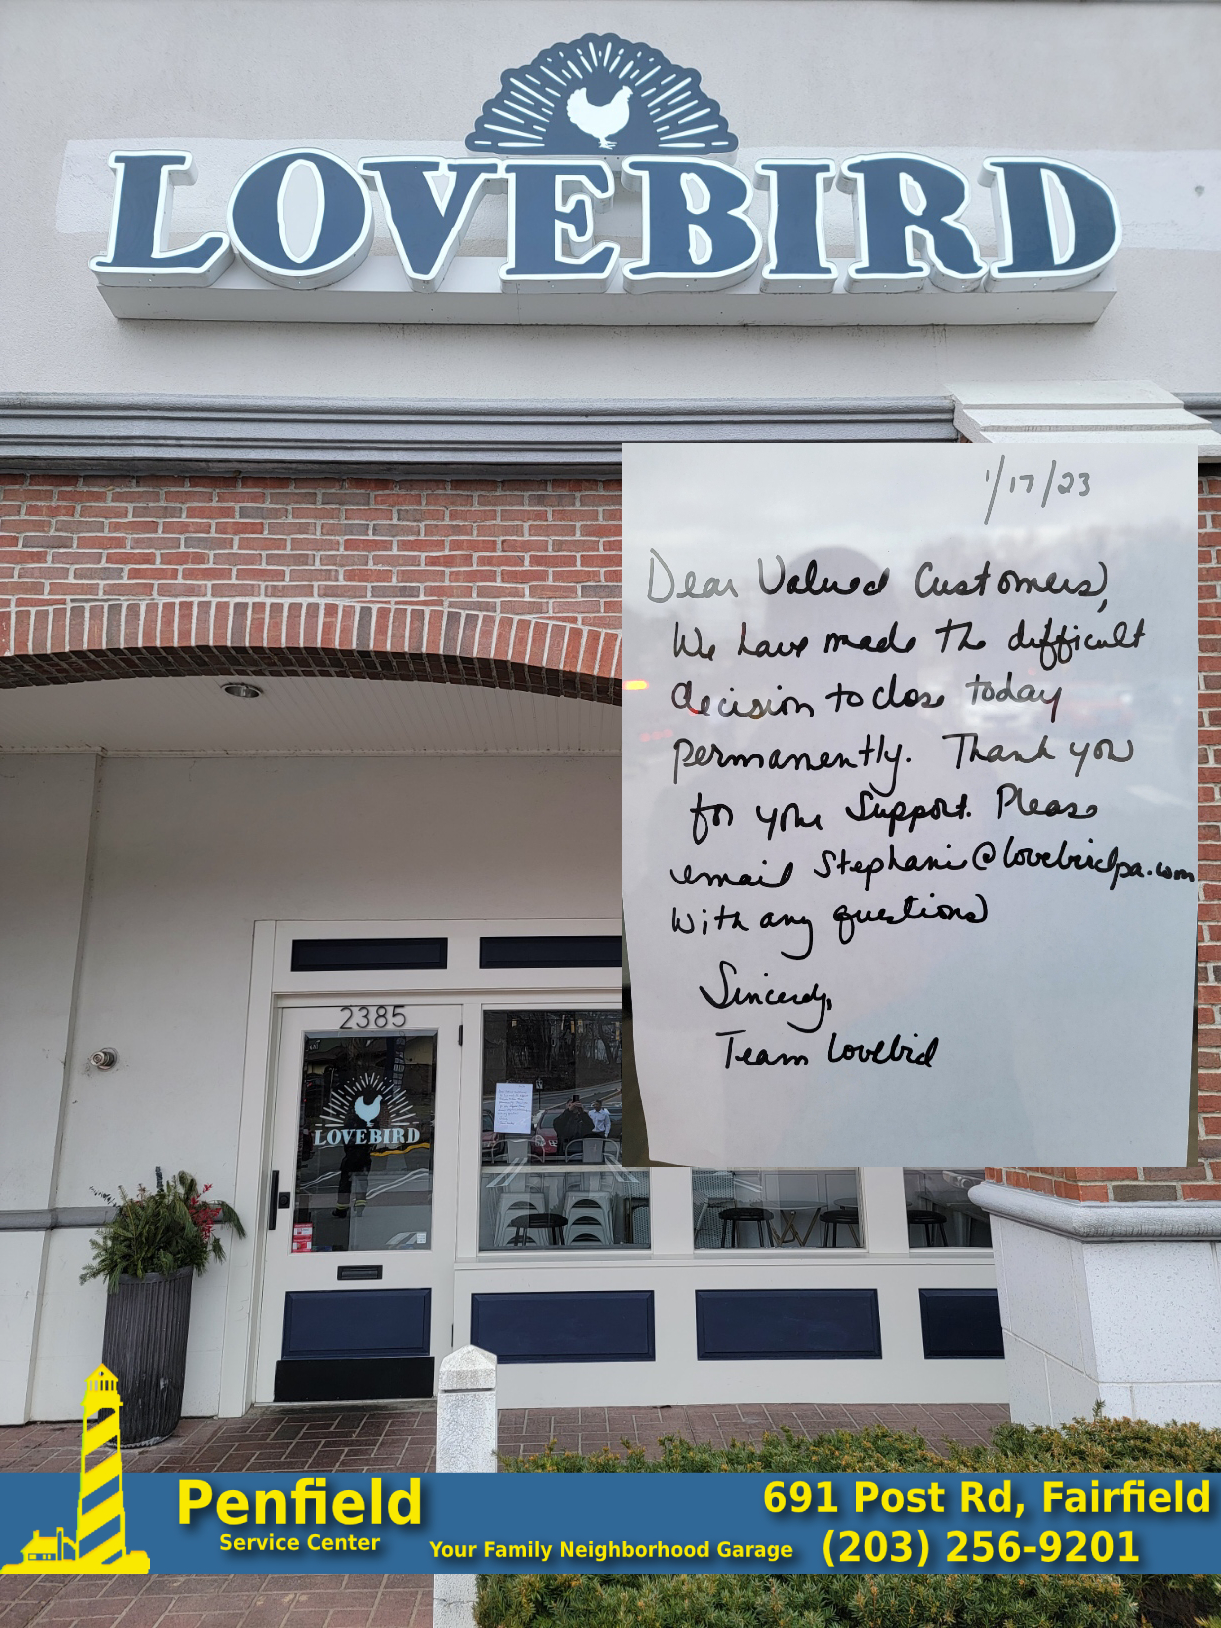 LOVEBIRD
1/17/23
Dear Valued Customers,
We have made the difficult
decision to close today
permanently. Thank you
for your Support. Please
email Stephanie@lovebirdpa.com
with any questions
Sincerely,
Team Lovebird
2385
LOVEBIRD
Penfield
Service Center
Your Family Neighborhood Garage
691 Post Rd, Fairfield
(203) 256-9201